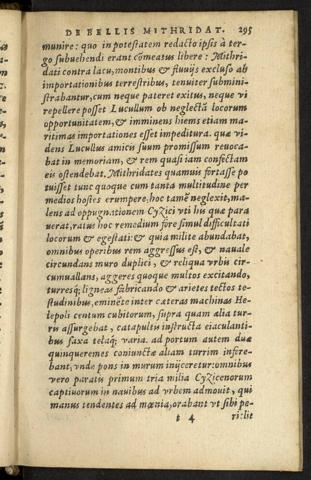 DE BELLIS MITHRIDAT. 295
munire: quo in potestatem redacto ipsis à ter-
go subuehendi erant cõmeatus libere: Mithri-
dati contra lacu, montibus & fluuijs excluso ab
importationibus terrestribus, tenuiter submini-
strabantur, cum neque pateret exitus, neque vi
repellere posset Lucullum ob neglectã locorum
opportunitatem, & imminens hiems etiam ma-
ritimas importationes esset impeditura. quæ vi-
dens Lucullus amicis suum promissum reuoca-
bat in memoriam, & rem quasi iam confectam
eis ostendebat. Mithridates quamuis fortasse po
tuisset tunc quoque cum tanta multitudine per
medios hostes erumpere, hoc tamẽ neglexit, ma-
lens ad oppugnationem Cyzici vti his quæ para
uerat, ratus hoc remedium fore simul difficultati
locorum & egestati: & quia milite abundabat,
omnibus operibus rem aggressus est, & nauale
circundans muro duplici, & reliqua vrbis cir-
cumuallans, aggeres quoque multos excitando,
turresq; ligneas fabricando & arietes tectos te-
studinibus, eminẽte inter cæteras machinas He-
lepoli centum cubitorum, supra quam alia tur-
ris assurgebat, catapultis instructa eiaculanti-
bus saxa telaq; varia. ad portum autem duæ
quinqueremes coniunctæ aliam turrim infere-
bant, vnde pons in murum inijceretur: omnibus
vero paratis primum tria milia Cyzicenorum
captiuorum in nauibus ad vrbem admouit, qui
manus tendentes ad mœnia, orabant vt sibi pe-
t 4 ri:lit